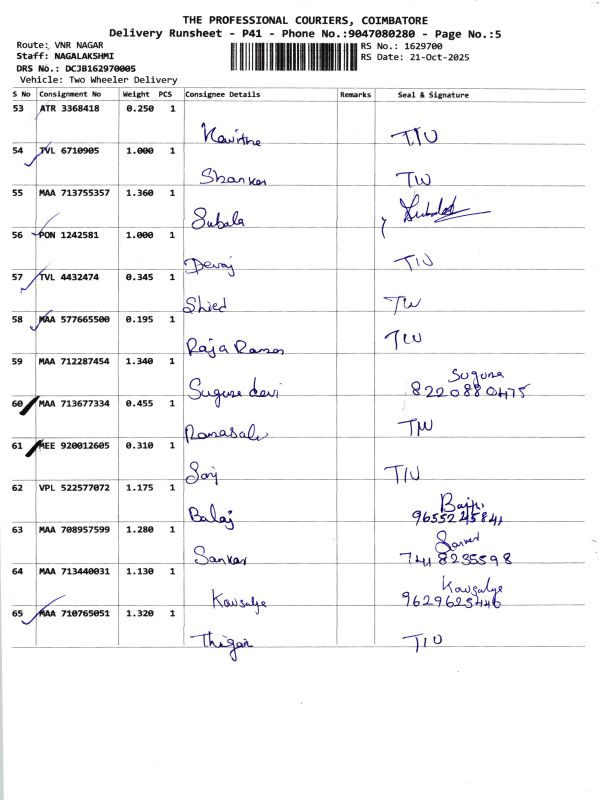 THE PROFESSIONAL COURIERS, COIMBATORE
Delivery Runsheet - P41 - Phone No.:9047080280 - Page No.:5
Route: VNR NAGAR
Staff: NAGALAKSHMI
DRS No.: DCJB162970005
Vehicle: Two Wheeler Delivery
RS No.: 1629700
RS Date: 21-Oct-2025
S No Consignment No Weight PCS Consignee Details Remarks Seal & Signature
53 ATR 3368418 0.250 1
Kavitha
54 TVL 6710905 1.000 1
Shankar
55 MAA 713755357 1.360 1
Subala
56 PON 1242581 1.000 1
Devaj
57 TVL 4432474 0.345 1
58 MAA 577665500 0.195 1
Raja Raman
59 MAA 712287454 1.340 1
Suguna
Suguna devi 8220880475
60 MAA 713677334 0.455 1
61 MEE 920012605 0.310 1
62 VPL 522577072 1.175 1
Balaj 9655245841
63 MAA 708957599 1.280 1
Sankar
Sankar 7418235598
64 MAA 713440031 1.130 1
Kausalya
Kausalya 9629625446
65 MAA 710765051 1.320 1